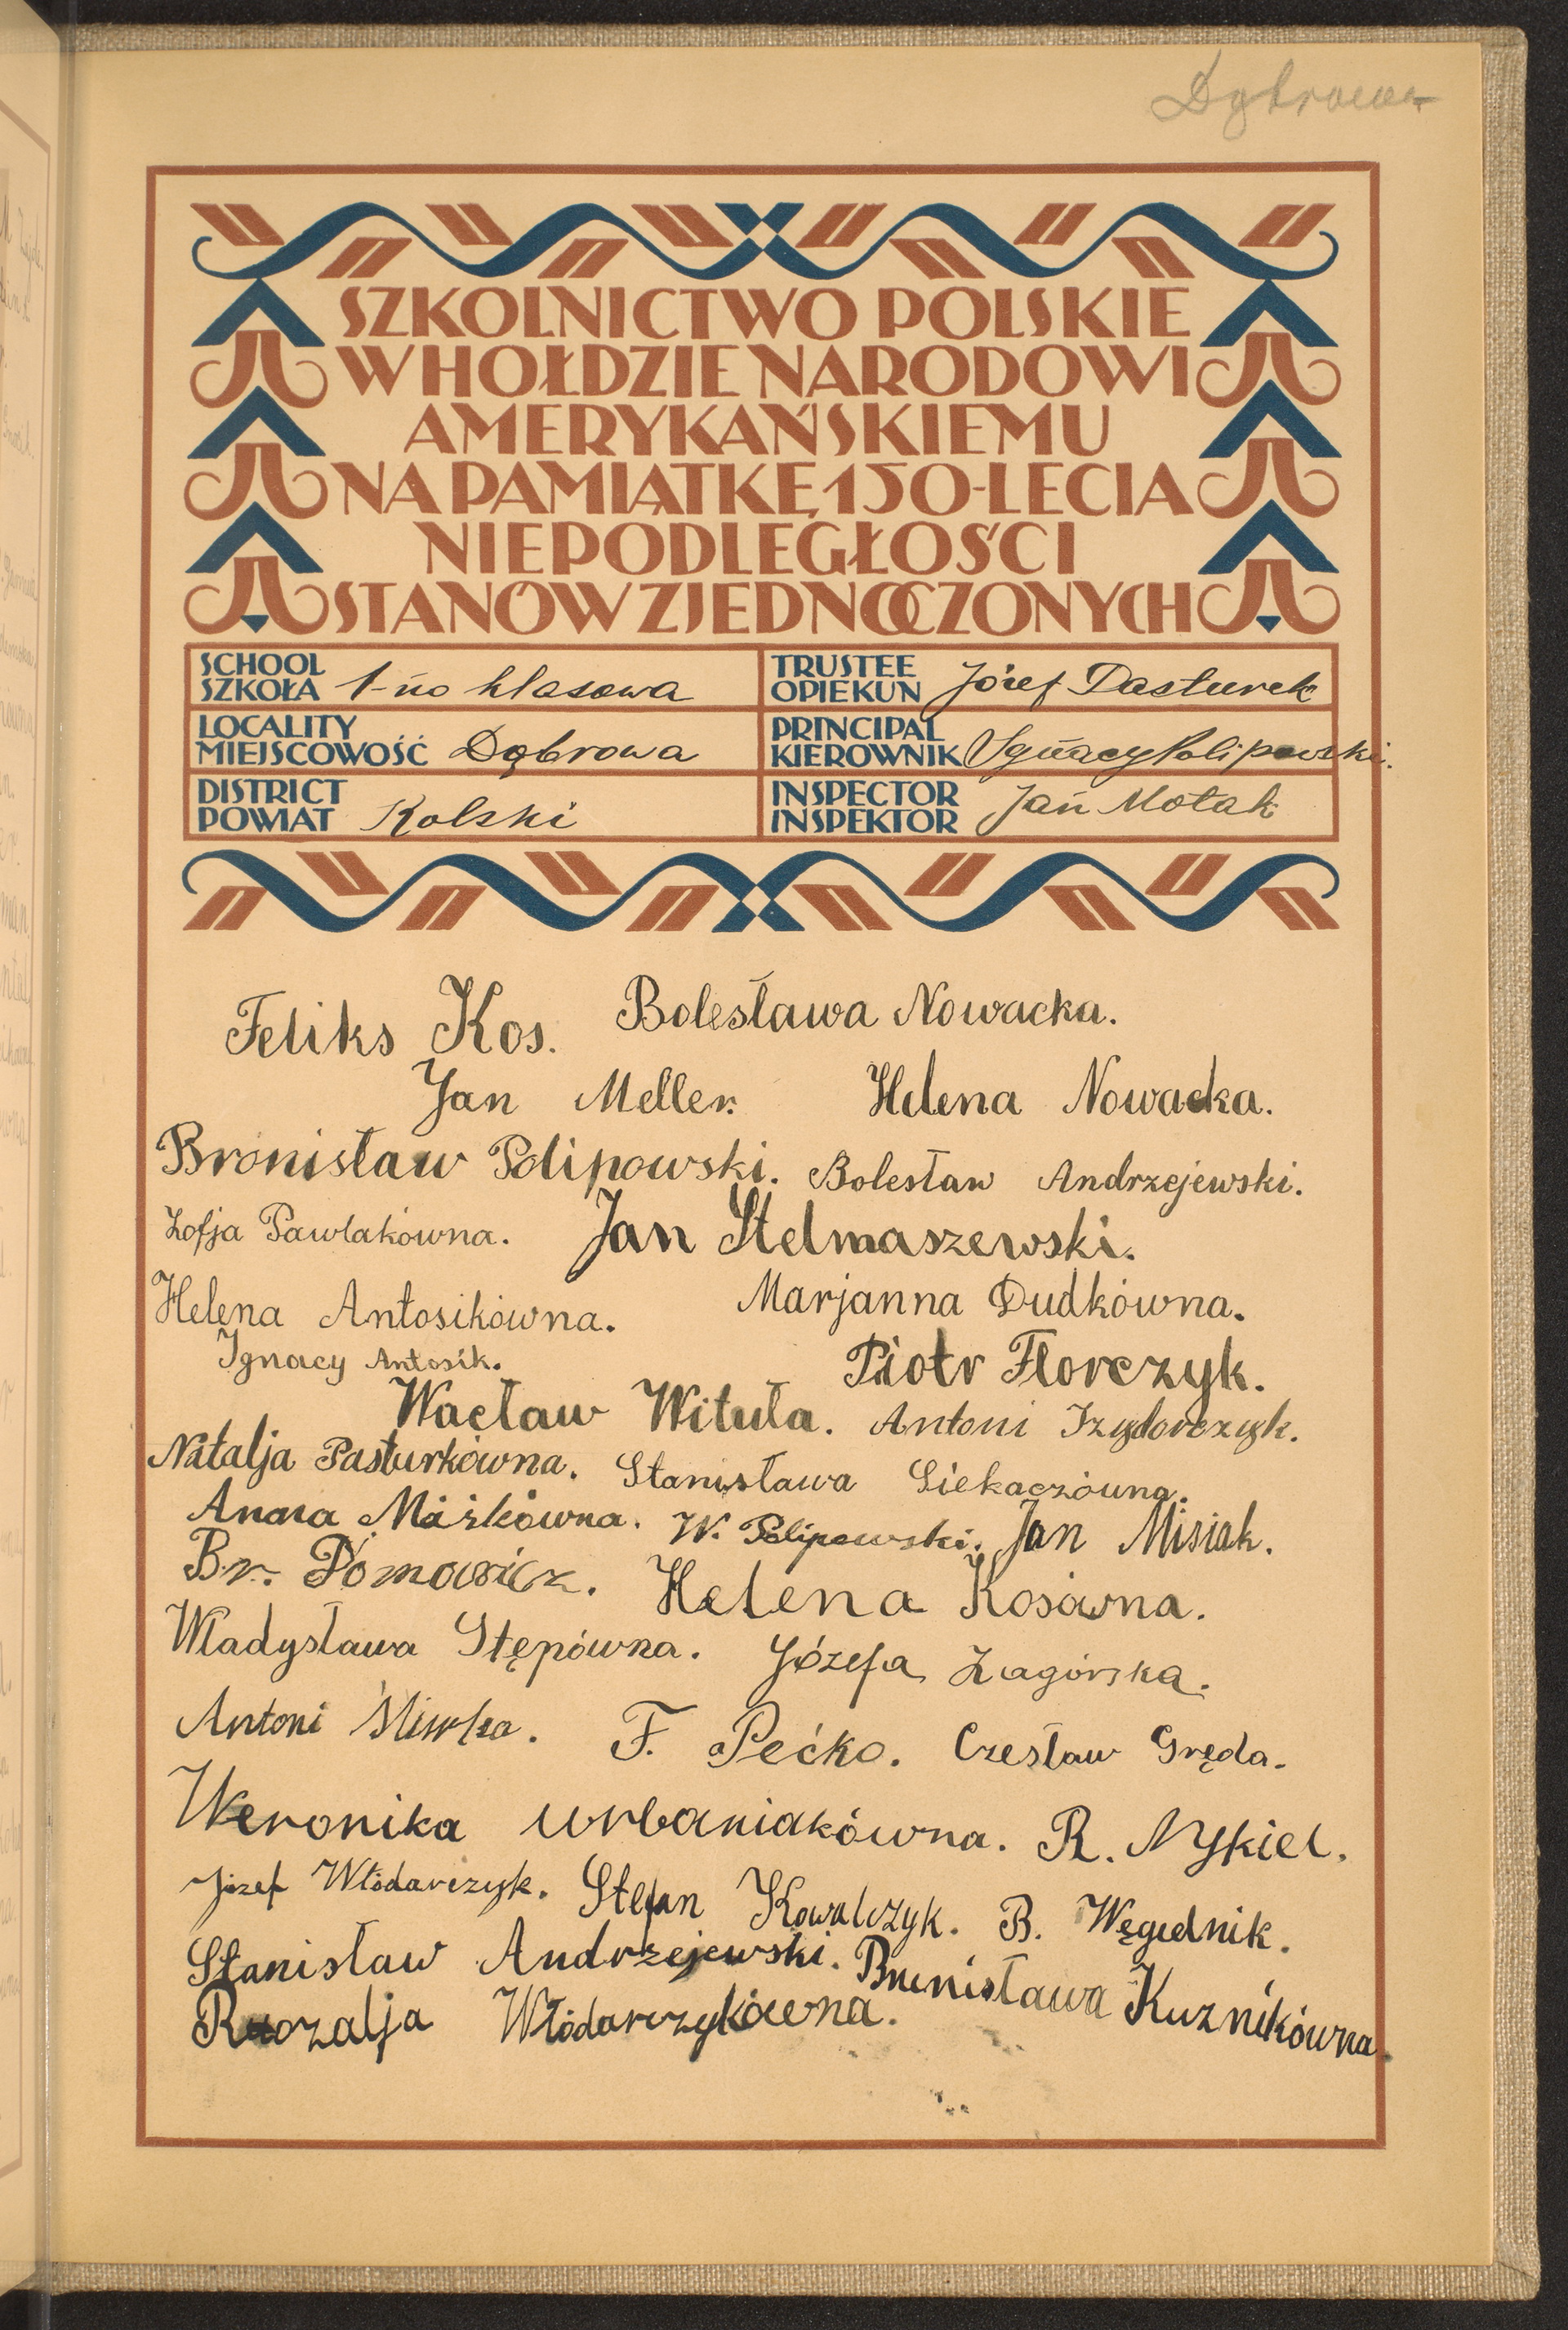 Dąbrowa
SZKOLNICTWO POLSKIE
W HOŁDZIE NARODOWI
AMERYKAŃSKIEMU
NA PAMIĄTKĘ 150-LECIA
NIEPODLEGŁOŚCI
STANÓW ZJEDNOCZONYCH
SCHOOL
SZKOŁA 1-no klasowa
TRUSTEE
OPIEKUN Józef Pasturek
LOCALITY
MIEJSCOWOŚĆ Dąbrowa
PRINCIPAL
KIEROWNIK Ignacy Polipowski.
DISTRICT
POWIAT Kolski
INSPECTOR
INSPEKTOR Jan Motak
Feliks Kos. Bolesława Nowacka.
Jan Meller. Helena Nowacka.
Bronisław Polipowski. Bolesław Andrzejewski.
Zofja Pawlakówna. Jan Stelmaszewski.
Helena Antosikówna. Marjanna Dudkówna.
Ignacy Antosik. Piotr Florczyk.
Wacław Wituła. Antoni Izydorczyk.
Natalja Pasturkówna. Stanisława Siekaczówna.
Anna Maśkówna. W. Polipowski. Jan Misiak.
Br. Helena Kosówna.
Władysława Stępówna. Józefa Zagórska.
Antoni Śliwka. F. Pećko. Czesław Gręda.
Weronika Urbaniakówna. R. Nykiel.
Józef Włodarczyk. Stefan Kowalczyk. B. Węgielnik.
Stanisław Andrzejewski. Bronisława Kuznikówna.
Rozalja Włódarczykówna.